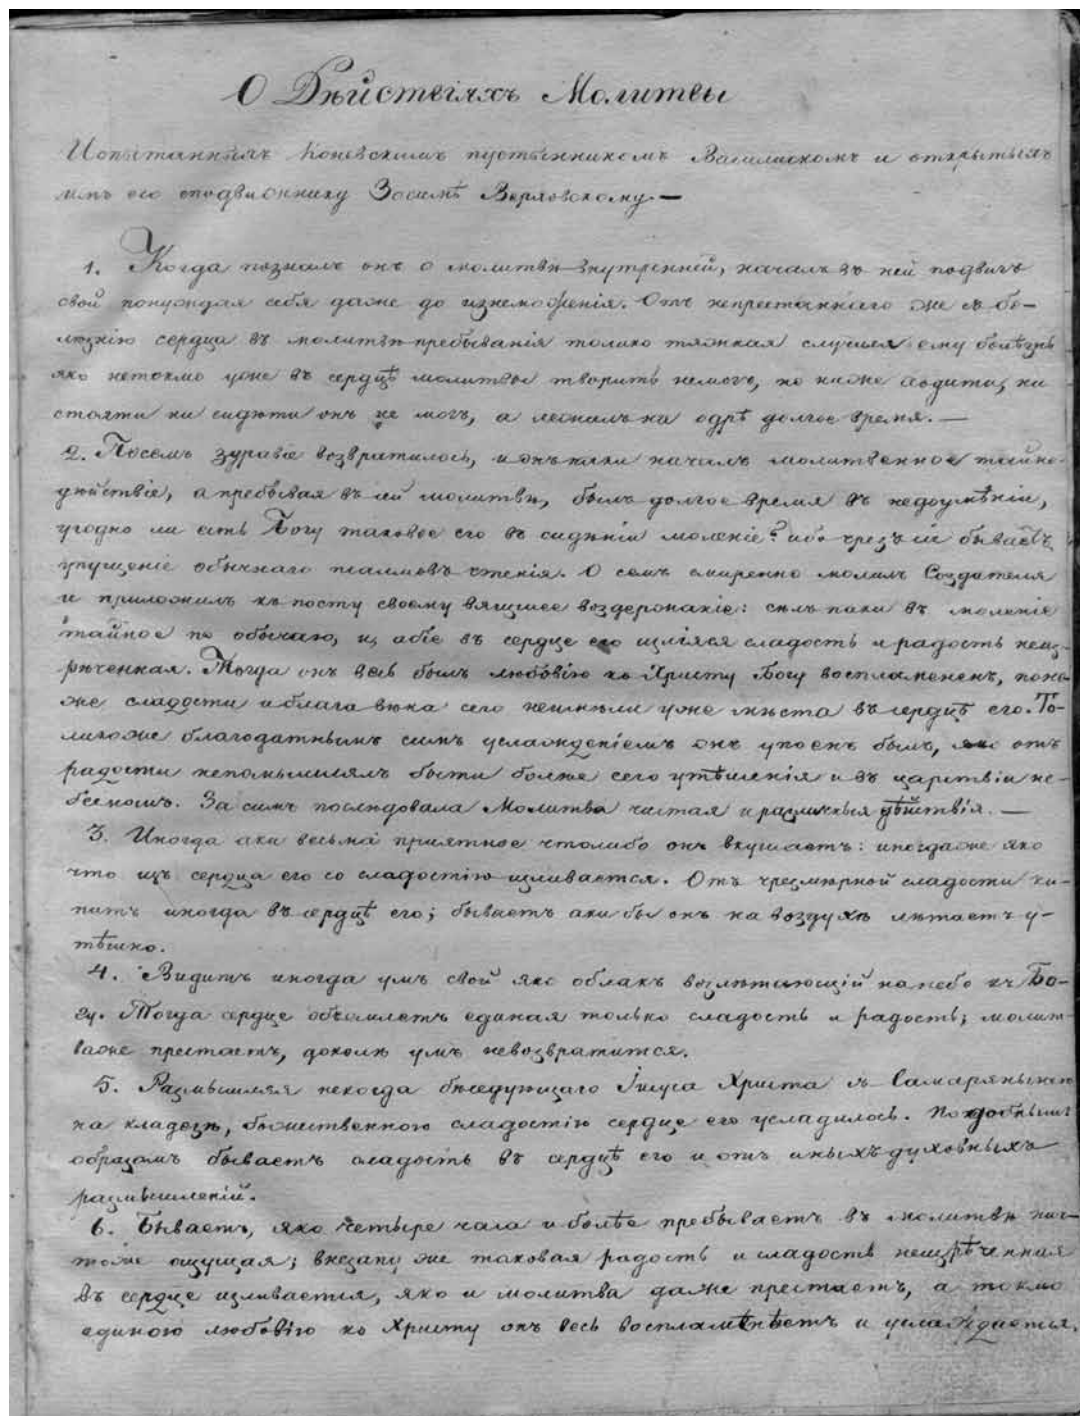 О Дѣйствіяхъ Молитвы
Испытанныхъ Коневскимъ пустынникомъ Василискомъ и открытыхъ
имъ его сподвижнику Зосимѣ Верховскому.—
1. Когда позналъ онъ о молитвѣ внутренней, началъ въ ней подвигъ
свой понуждая себя даже до изнеможенія. Отъ непрестаннаго же съ бо-
лѣзнію сердца въ молитвѣ пребыванія толико тяжкая случися ему болѣзнь
яко нетокмо уже въ сердцѣ молитвы творить немогъ, но ниже ходити, ни
стояти ни сидѣти онъ не могъ, а лежалъ на одрѣ долгое время. —
2. Посемъ здравіе возвратилось, и онъ паки началъ молитвенное тайно-
дѣйствіе, а пребывая въ сей молитвѣ, былъ долгое время въ недоумѣніи,
угодно ли есть Богу таковое его въ сидѣніи моленіе? ибо чрезъ сіе бываетъ
упущеніе обычнаго псалмовъ чтенія. О семъ смиренно молилъ Создателя
и приложилъ къ посту своему вящшее воздержаніе: силъ паки въ моленіе
тайное по обычаю, и, абіе въ сердце его изліяся сладость и радость неиз-
рѣченная. Тогда онъ весь былъ любовію ко Христу Богу воспламененъ, поне-
же сладости и блага вѣка сего неимѣли уже мѣста въ сердцѣ его. То-
ликоже благодатнымъ симъ услажденіемъ онъ упоенъ былъ, яко отъ
радости непомышлялъ быти болѣе сего утѣшенія и въ царствіи не-
бесномъ. За симъ послѣдовала Молитва чистая и различныя дѣйствія. —
3. Иногда аки весьма пріятное чтолибо онъ вкушаетъ: иногдаже яко
что изъ сердца его со сладостію изливается. Отъ чрезмѣрной сладости ки-
питъ иногда въ сердцѣ его; бываетъ аки бы онъ на воздухѣ лѣтаетъ у-
тѣшно.
4. Видитъ иногда умъ свой яко облакъ возлѣтающій на небо къ Бо-
гу. Тогда сердце объемлетъ единая только сладость и радость; молит-
важе престаетъ, доколѣ умъ невозвратится.
5. Размышляя некогда бѣседующаго Іисуса Христа съ Самаряныною
на кладезѣ, божественною сладостію сердце его усладилось. Подобнымъ
образомъ бываетъ сладость въ сердцѣ его и отъ иныхъ духовныхъ
размышленій.
6. Бываетъ, яко четыре часа и болѣе пребываетъ въ молитвѣ нич-
тоже ощущая; внезапу же таковая радость и сладость неизрѣченная
въ сердце изливается, яко и молитва даже престаетъ, а токмо
единою любовію ко Христу онъ весь воспламѣнѣетъ и услаждается.